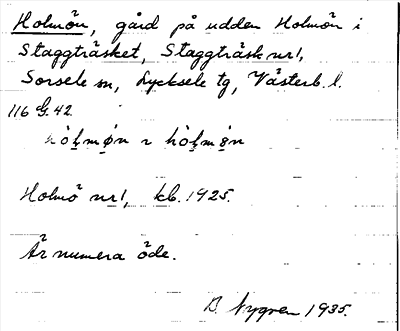 Holmön, gård på udden Holmön i
Staggträsket, Staggträsk nr 1,
Sorsele sn, Lycksele tg, Västerb. l.
116 G. 42
hòḷmøn ~ hòḷmøn
Holmö nr 1, kb. 1925.
Är numera öde.
B. Nygren 1935.